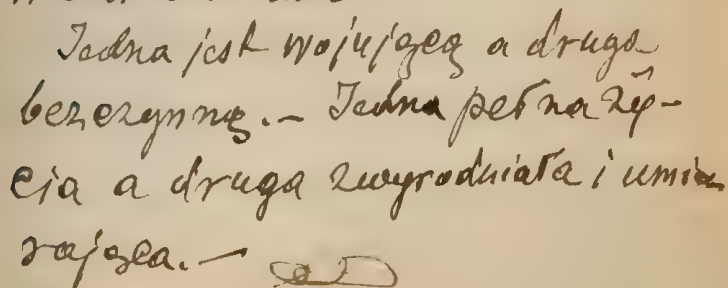 Jedna jest wojującą a druga
bezczynną. – Jedna pełna ży-
cia a druga zwyrodniała i umie
rająca. –